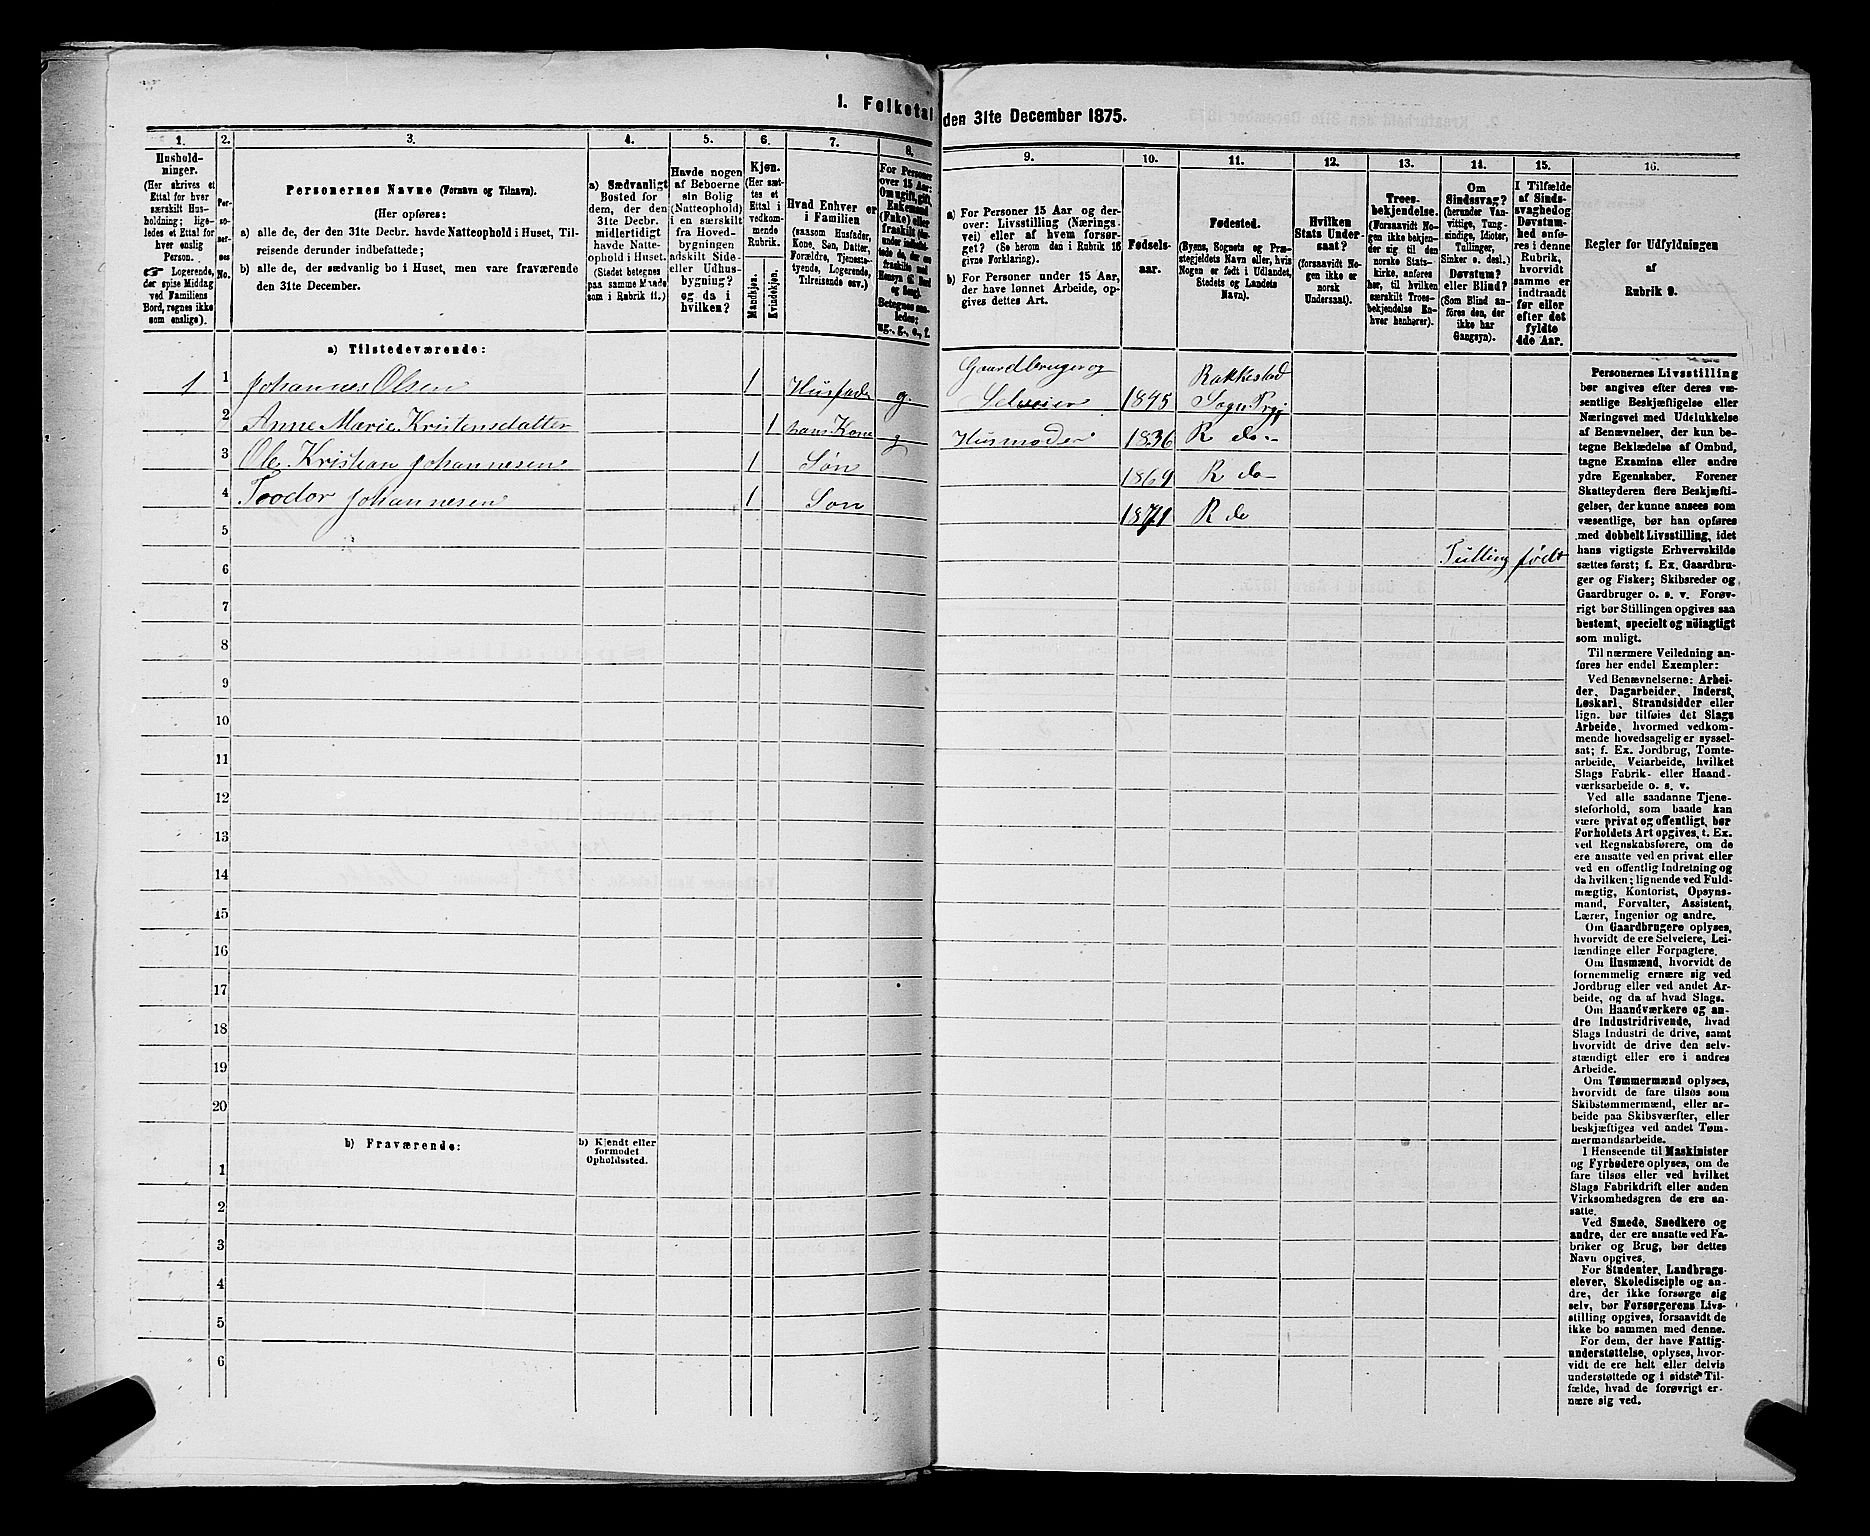 1. Folketal den 31te December 1875.
1.
Hushold-
ninger.
(Her skrives et
Ettal for hver
særskilt Hus-
holdning; lige-
ledes et Ettal for
hver enslig
Person.
☞ Logerende,
der spise Middag
ved Familiens
Bord, regnes ikke
som enslige).
2.
Per-
so-
ner-
nes
No.
3.
Personernes Navne (Fornavn og Tilnavn).
(Her opføres:
a) alle de, der den 31te Decbr. havde Natteophold i Huset, Til-
reisende derunder indbefattede;
b) alle de, der sædvanlig bo i Huset, men vare fraværende
den 31te December.
4.
a) Sædvanligt
Bosted for
dem, der den
31te Decbr.
midlertidigt
havde Natte-
ophold i Huset.
(Stedet betegnes
paa samme Maade
som i Rubrik 11.)
5.
Havde nogen
af Beboerne
sin Bolig
(Natteophold)
i en særskilt
fra Hoved-
bygningen
adskilt Side-
eller Udhus-
bygning?
og da i
hvilken?
6.
Kjøn.
(Her sæt-
tes et
Ettal i
vedkom-
mende
Rubrik.
Mandkjøn.
Kvindekjøn.
7.
Hvad Enhver er
i Familien
(saasom Husfader,
Kone, Søn, Datter,
Forældre, Tjeneste-
tyende, Logerende,
Tilreisende osv.)
8.
For Personer
over 15 Aar:
Om ugift, gift,
Enkemand
(Enke) eller
fraskilt
Betegnes saa-
ledes:
ug., g., e., f.
9.
a) For Personer 15 Aar og der-
over: Livsstilling (Nærings-
vei) eller af hvem forsør-
get? (Se herom den i Rubrik 16
givne Forklaring).
b) For Personer under 15 Aar,
der have lønnet Arbeide, op-
gives dettes Art.
10.
Fødsels-
aar.
11.
Fødested.
(Byens, Sognets og Præ-
stegjeldets Navn eller, hvis
Nogen er født i Udlandet,
Stedets og Landets
Navn).
12.
Hvilken
Stats Under-
saat?
(forsaavidt No-
gen ikke er
norsk
Undersaat).
13.
Troes-
bekjendelse.
(Forsaavidt No-
gen ikke bekjen-
der sig til den
norske Stats-
kirke, anføres
her, til hvilken
særskilt Troes-
bekjendelse En-
hver henhører).
14.
Om
Sindssvag?
(herunder Van-
vittige, Tung-
sindige, Idioter,
Tullinger,
Sinker o. desl.)
Døvstum?
eller Blind?
(Som Blind an-
føres den, der
ikke har
Gangsyn).
15.
I Tilfælde
af Sinds-
svaghed og
Døvstum-
hed anfø-
res i denne
Rubrik,
hvorvidt
samme er
indtraadt
før eller
efter det
fyldte
4de Aar.
16.
Regler for Udfyldningen
af
Rubrik 9.
a) Tilstedeværende:
1 1 Johannes Olsen 1 Husfader g. Gaardbruger og Selveier 1845 Rakkestad Sogn Prgj
2 Anne Marie Kristensdatter 1 hans Kone g 1836 Husmoder R do.
3 Ole Kristian Johannesen 1 Søn 1869 R do
4 Teodor Johannesen 1 Søn 1871 R do
5 Tulling født
6
7
8
9
10
11
12
13
14
15
16
17
18
19
20
b) Fraværende:
b) Kjendt eller
formodet
Opholdssted.
1
2
3
4
5
6
Personernes Livsstilling
bør angives efter deres væ-
sentlige Beskjæftigelse eller
Næringsvei med Udelukkelse
af Benævnelser, der kun be-
tegne Beklædelse af Ombud,
tagne Examina eller andre
ydre Egenskaber. Forener
Skatteyderen flere Beskjæfti-
gelser, der kunne ansees som
væsentlige, bør han opføres
med dobbelt Livsstilling, idet
hans vigtigste Erhvervskilde
sættes først; f. Ex. Gaardbru-
ger og Fisker; Skibsreder og
Gaardbruger o. s. v. Forøv-
rigt bør Stillingen opgives saa
bestemt, specielt og nöiagtigt
som muligt.
Til nærmere Veiledning an-
føres her endel Exempler:
Ved Benævnelserne: Arbei-
der, Dagarbeider, Inderst,
Løskarl, Strandsidder eller
lign. bør tilføies det Slags
Arbeide, hvormed vedkom-
mende hovedsagelig er syssel-
sat; f. Ex. Jordbrug, Tomte-
arbeide, Veiarbeide, hvilket
Slags Fabrik- eller Haand-
værksarbeide o. s. v.
Ved alle saadanne Tjene-
steforhold, som baade kan
være privat og offentligt, bør
Forholdets Art opgives, t. Ex.
ved Regnskabsførere, om de
ere ansatte ved en privat eller
ved en offentlig Indretning og
da hvilken; lignende ved Fuld-
mægtig, Kontorist, Opsyns-
mand, Forvalter, Assistent,
Lærer, Ingeniør og andre.
Om Gaardbrugere oplyses,
hvorvidt de ere Selveiere, Lei-
lændinge eller Forpagtere.
Om Husmænd, hvorvidt de
fornemmelig ernære sig ved
Jordbrug eller ved andet Ar-
beide, og da af hvad Slags.
Om Haandværkere og an-
dre Industridrivende, hvad
Slags Industri de drive, samt
hvorvidt de drive den selv-
stændigt eller ere i andres
Arbeide.
Om Tømmermænd oplyses,
hvorvidt de fare tilsøs som
Skibstømmermænd, eller ar-
beide paa Skibsværfter, eller
beskjæftiges ved andet Tøm-
mermandsarbeide.
I Henseende til Maskinister
og Fyrbødere oplyses, om de
fare tilsøs eller ved hvilket
Slags Fabrikdrift eller anden
Virksomhedsgren de ere an-
satte.
Ved Smede, Snedkere og
andre, der ere ansatte ved Fa-
briker og Brug, bør dettes
Navn opgives.
For Studenter, Landbrugs-
elever, Skoledisciple og an-
dre, der ikke forsørge sig
selv, bør Forsørgerens Livs-
stilling opgives, forsaavidt de
ikke bo sammen med denne.
For dem, der have Fattig-
understøttelse, oplyses, hvor-
vidt de ere helt eller delvis
understøttede og i sidste Til-
fælde, hvad de forøvrigt er-
nære sig ved.